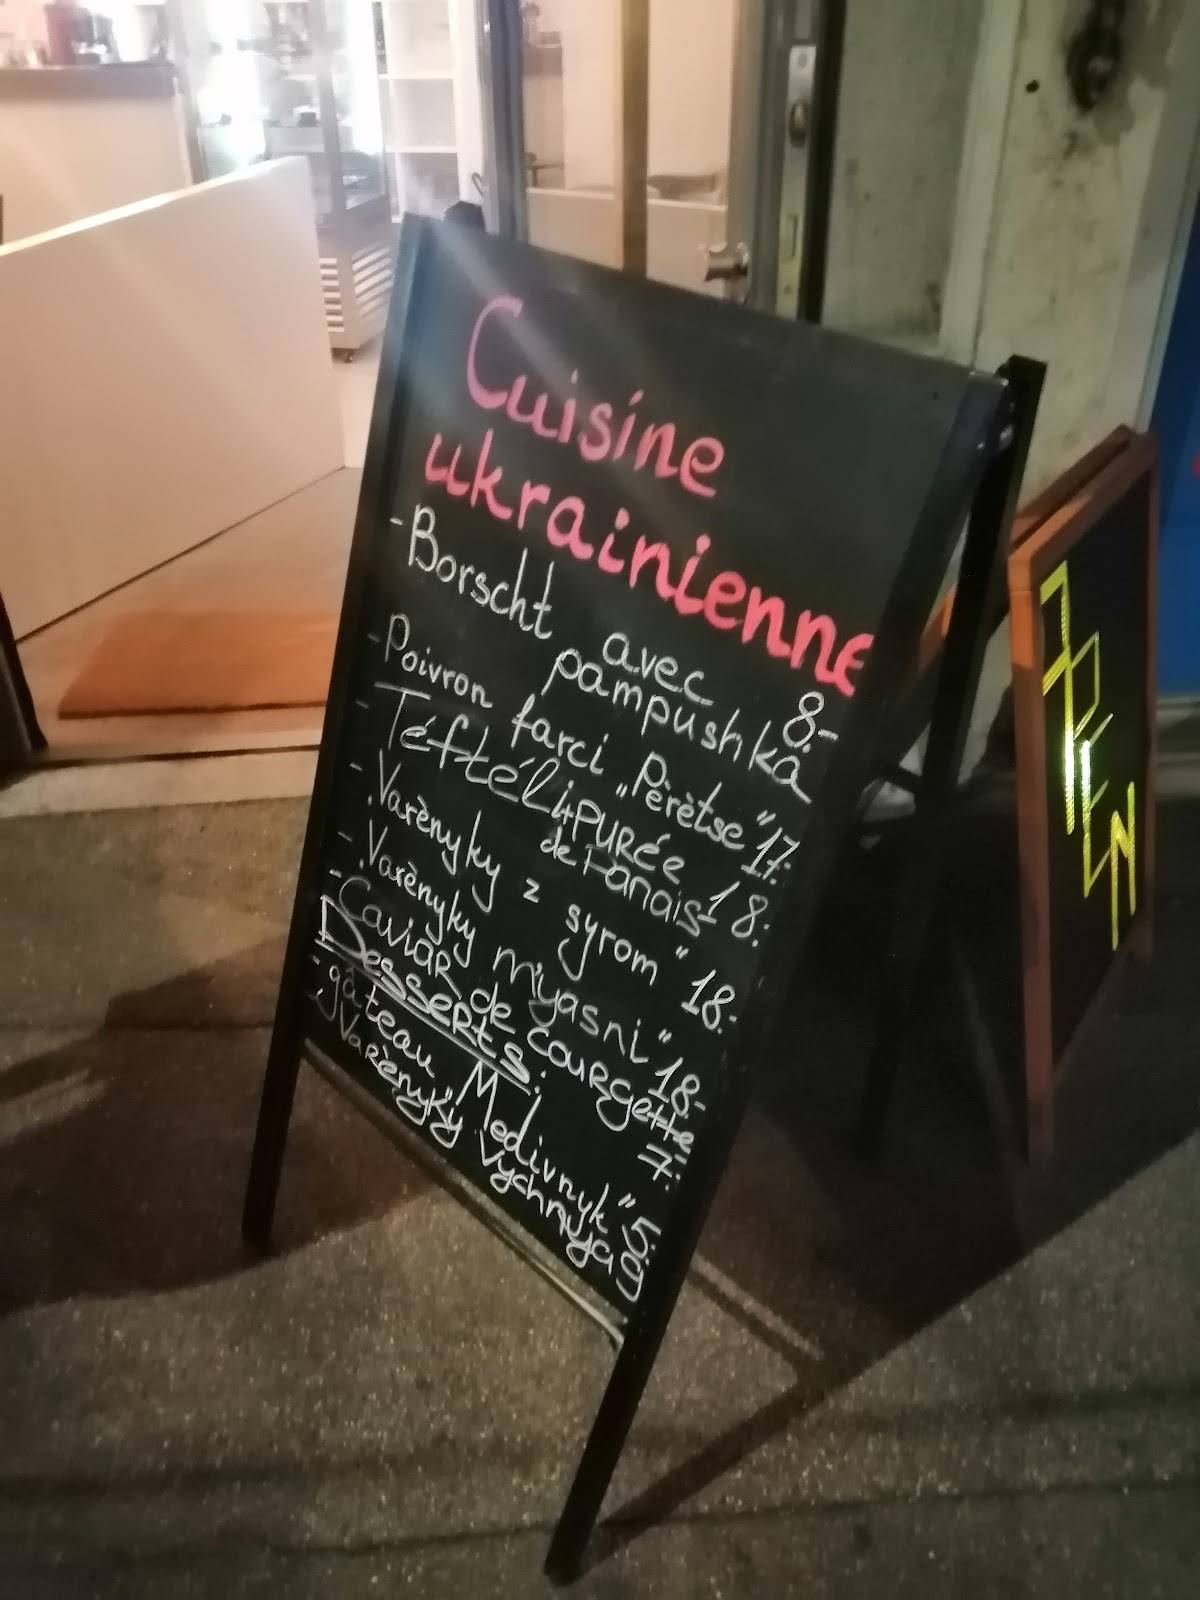 Cuisine
ukrainienne
- Borscht avec 8.-
pampushka
- Poivron farci "Pèrètse" 17.-
- Téftéli + PURÉE 18.-
de Panais
- "Varènyky z syrom" 18.-
- "Varènyky m'yasni" 18.-
- Caviar de courgette
7.-
Desserts:
- gâteau "Medivnyk" 5.-
- "Varènyky
OPEN